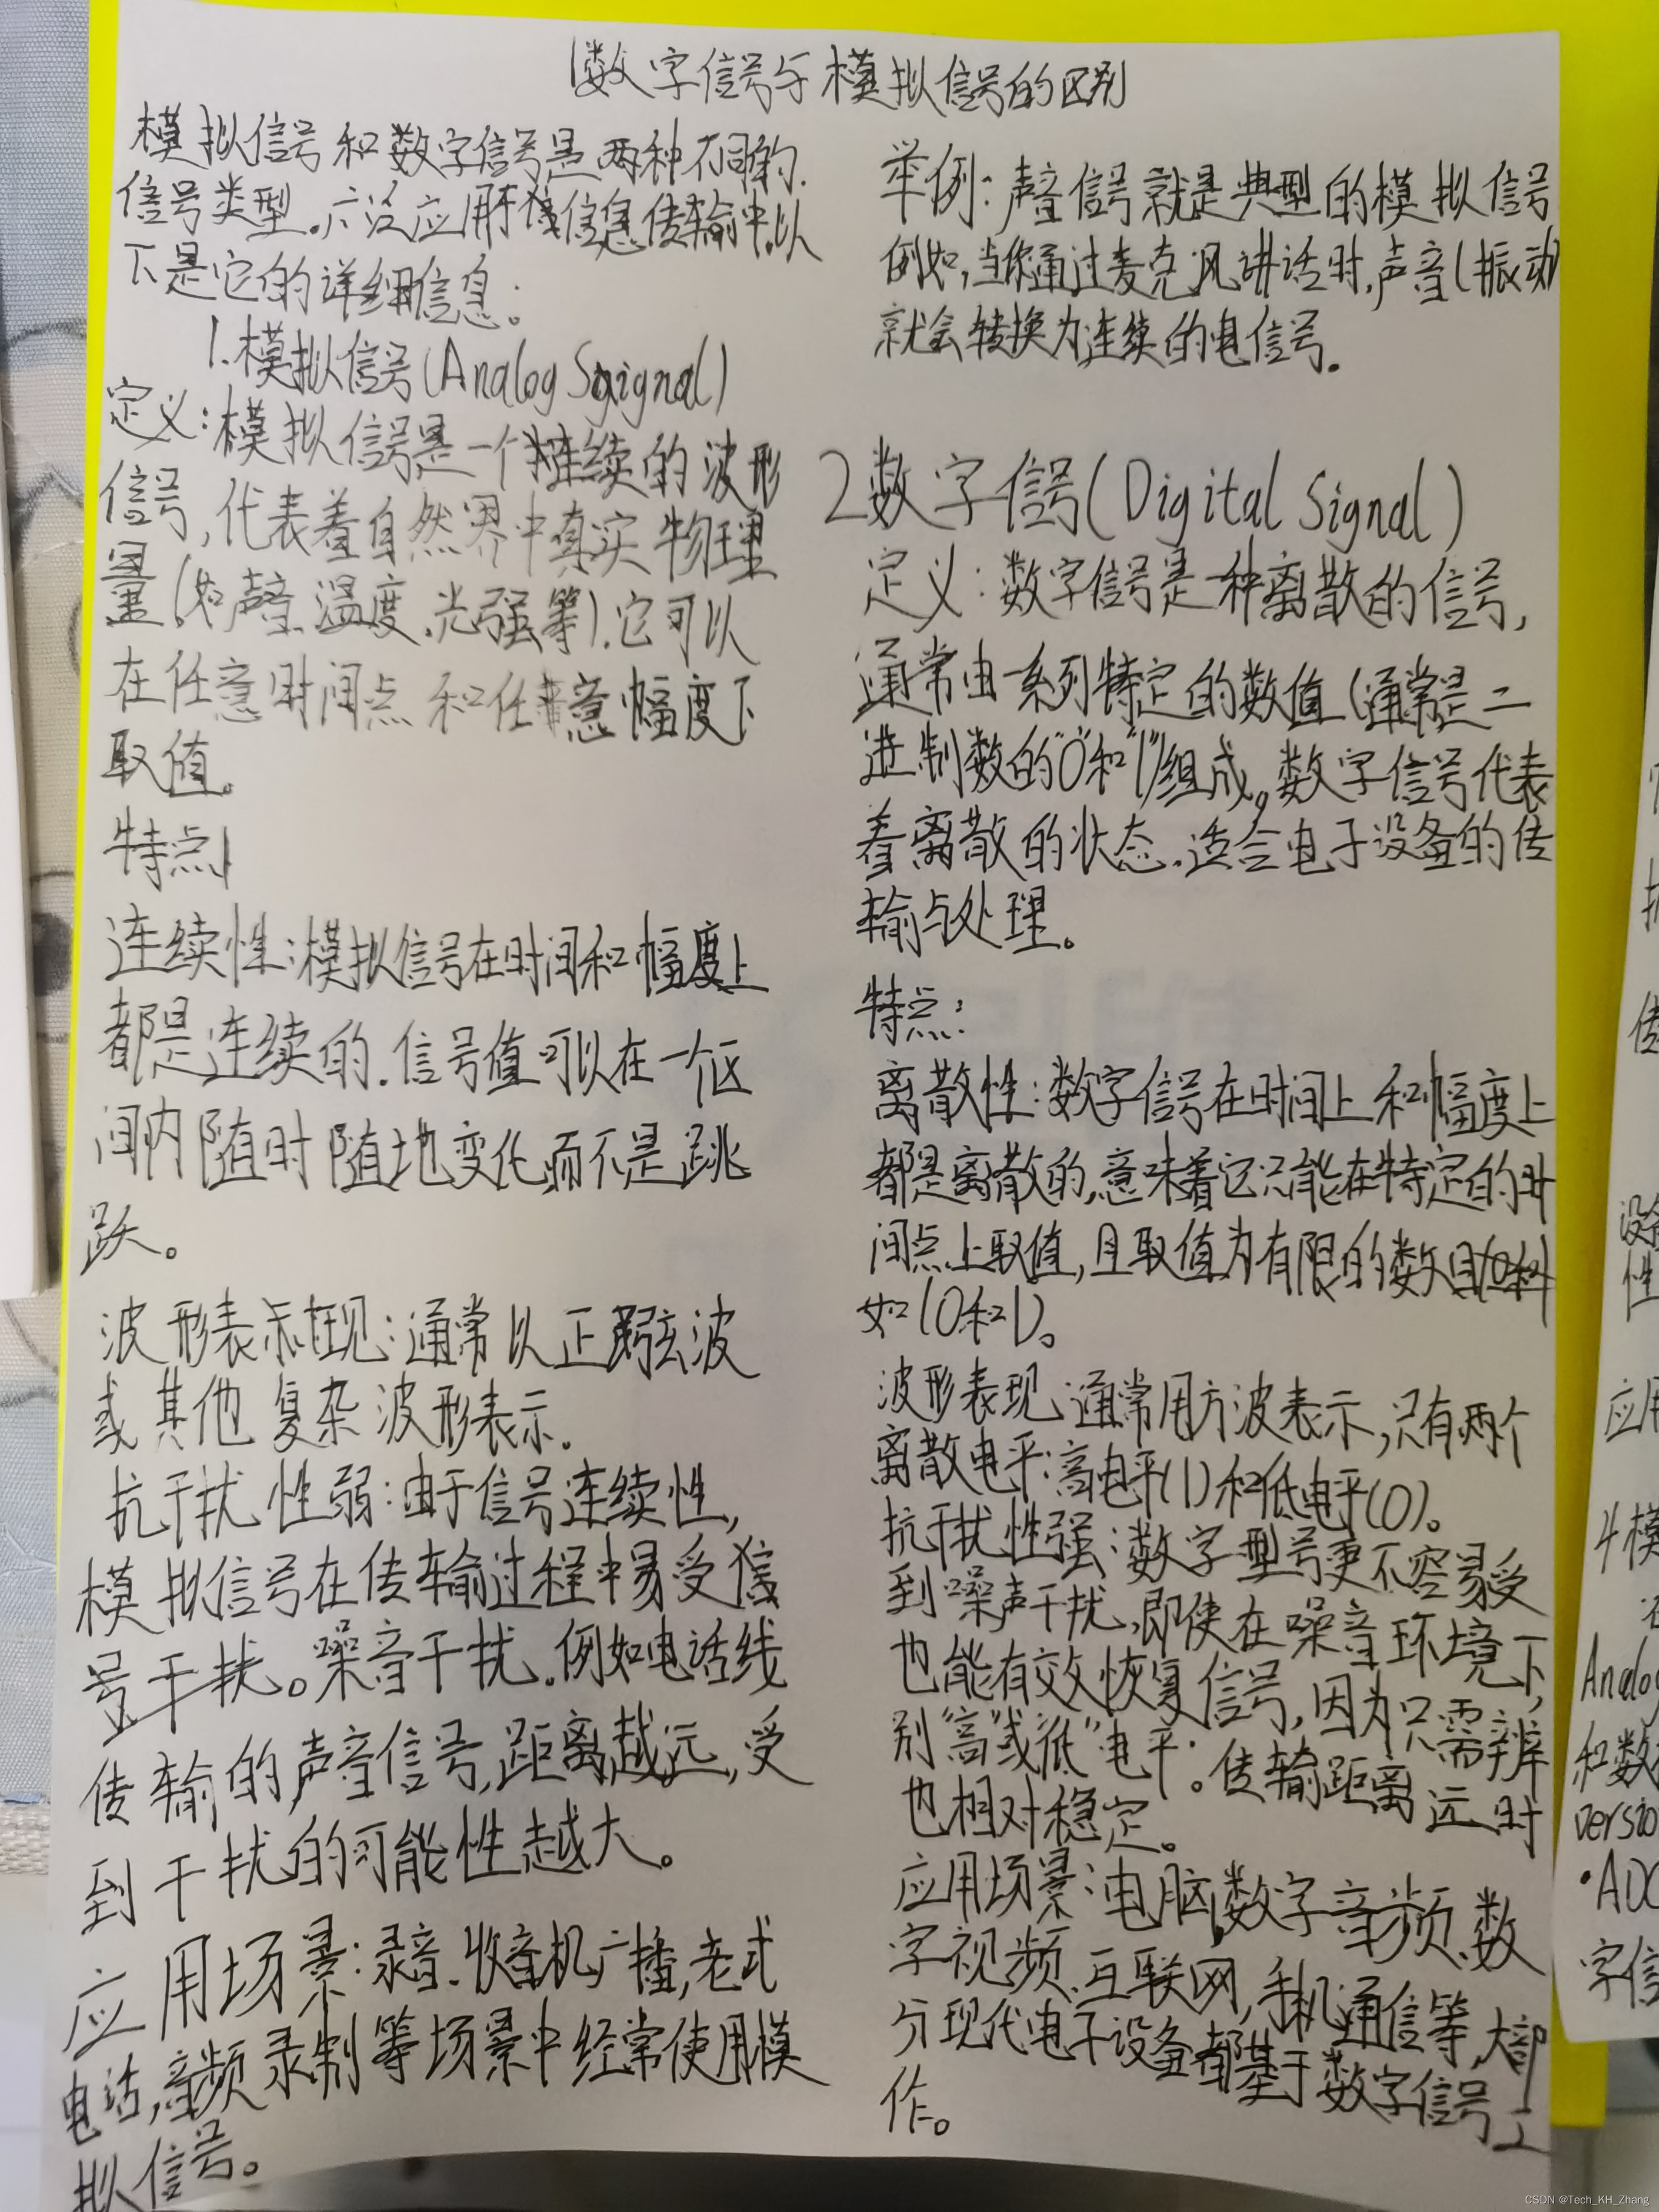 数字信号与模拟信号的区别
模拟信号和数字信号是两种不同的
信号类型.广泛应用于信息传输中.以
下是它的详细信息:
1.模拟信号(Analog Signal)
定义:模拟信号是一个连续的波形
信号,代表着自然界中真实物理
量(如声音.温度.光强等).它可以
在任意时间点和任意幅度下
取值。
特点
连续性:模拟信号在时间和幅度上
都是连续的.信号值可以在一个区
间内随时随地变化,而不是跳
跃。
波形表现:通常以正弦波
或其他复杂波形表示.
抗干扰性弱:由于信号连续性,
模拟信号在传输过程中易受信
号干扰。噪音干扰.例如电话线
传输的声音信号,距离越远,受
到干扰的可能性越大。
应用场景:录音.收音机广播,老式
电话,音频录制等场景中经常使用模
拟信号。
举例:声音信号就是典型的模拟信号
例如,当你通过麦克风讲话时,声音(振动)
就会转换为连续的电信号.
2数字信号(Digital Signal)
定义:数字信号是一种离散的信号,
通常由一系列特定的数值(通常是二
进制数的"0"和"1")组成,数字信号代表
着离散的状态.适合电子设备的传
输与处理。
特点:
离散性:数字信号在时间上和幅度上
都是离散的,意味着它只能在特定的时
间点上取值,且取值为有限的数目
如(0和1)。
波形表现 通常用方波表示,只有两个
离散电平:高电平(1)和低电平(0)。
抗干扰性强:数字型号更不容易受
到噪声干扰,即使在噪音环境下,
也能有效恢复信号,因为只需辨
别"高"或"低"电平.。传输距离远时
也相对稳定。
应用场景:电脑,数字音频.数
字视频.互联网,手机通信等,大部
分现代电子设备都基于数字信号工
作。
传
设备
性
应用
4模
Analog
和数
versio
·ADC
字信
CSDN @Tech_KH_Zhang